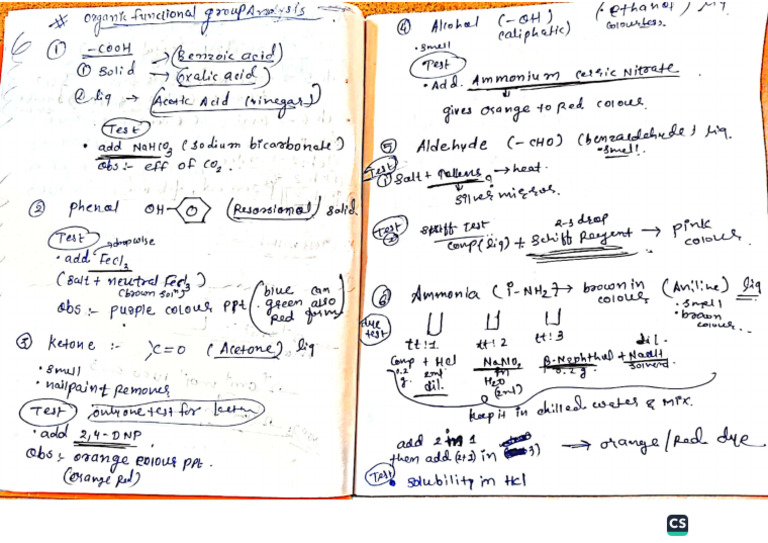 # Organic functional group Analysis
① -COOH → (Benzoic acid)
① Solid → (oxalic acid)
② liq → (Acetic Acid (vinegar))
Test
• add NaHCO3 (sodium bicarbonate)
obs :- eff of CO2 .
② phenol OH- (Resorsional) solid.
Test
dropwise
• add FeCl3
(salt + neutral FeCl3)
(brown soln)
obs :- purple colour ppt (blue can
green also
Red form)
③ Ketone :- >C=O (Acetone) liq
• smell
• nailpaint Remover
Test only one test for
• add 2,4-DNP
Obs :- orange colour ppt .
(orange Red)
④ Alcohol (-OH) (ethanol)
(aliphatic) colourless.
• smell
Test
• Add. Ammonium Cerric Nitrate
gives orange to Red colour.
⑤ Aldehyde (-CHO) (benzaldehyde) liq.
• smell.
Test
① Salt + Tollens → heat.
silver mirror
Test 2 Schiff Test 2-3 drop
comp (liq) + Schiff Reagent → pink
colour
⑥ Ammonia (1°-NH2) → brown in (Aniline) liq
colour • smell
• brown
colour..
dye
test
tt:1 tt:2 tt:3 dil.
Comp + Hcl NaNO2 B-Naphthol + NaOH
0.2 2ml in 0.2 g. solvent
g. dil. H2O
(2ml)
keep it in chilled water & Mix.
add 2 in 1
then add (2+1) in 3) → orange/Red dye
Test
• solubility in Hcl
CS